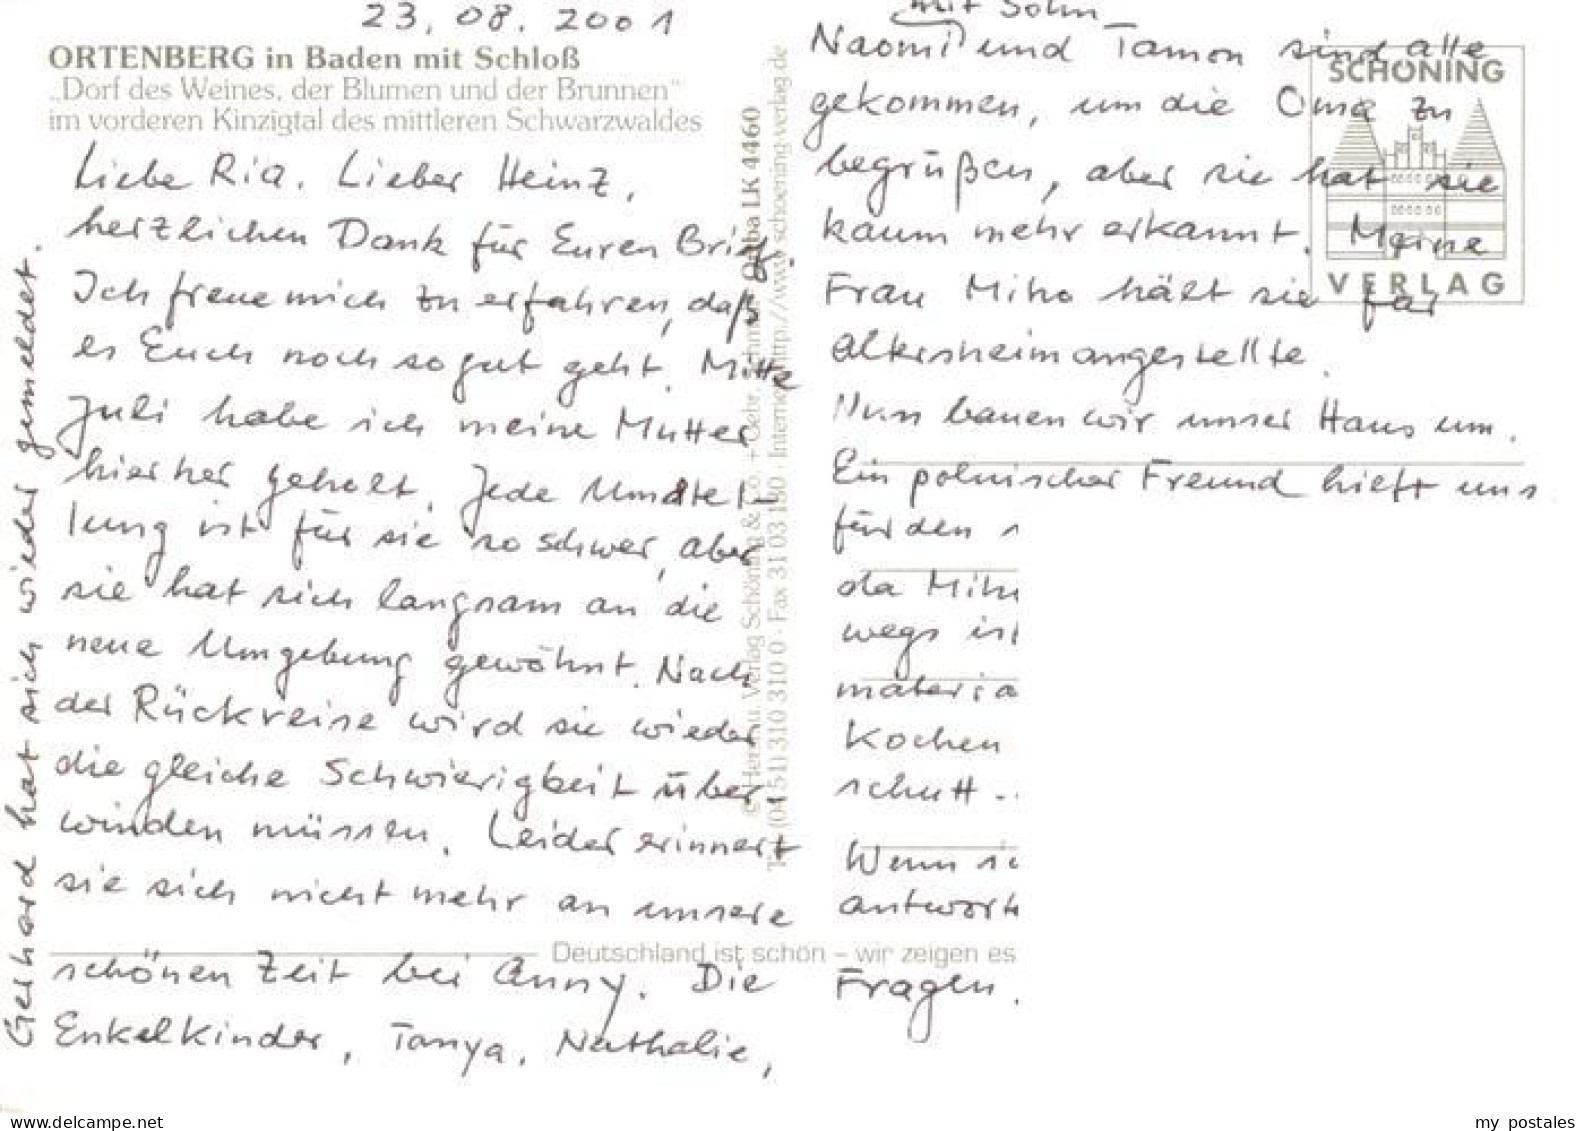 23. 08. 2001
ORTENBERG in Baden mit Schloß
„Dorf des Weines, der Blumen und der Brunnen“
im vorderen Kinzigtal des mittleren Schwarzwaldes
Liebe Ria. Lieber Heinz,
herzlichen Dank für Euren Brief.
Ich freue mich zu erfahren, daß
es Euch noch so gut geht. Mitte
Juli habe ich meine Mutter
hierher geholt. Jede Umstel-
lung ist für sie so schwer, aber
sie hat sich langsam an die
neue Umgebung gewöhnt. Nach
der Rückreise wird sie wieder
die gleiche Schwierigkeit über-
winden müssen. Leider erinnert
sie sich nicht mehr an unsere
schönen Zeit bei Anny. Die
Enkelkinder, Tanya, Nathalie,
Gerhard hat sich wieder gemeldet.
© Verlag Schöning & Co. + Gebr. Schmidt LK 4460
(04 51) 310 310 0 · Fax 31 03 180 · Internet http://www.schoening-verlag.de
mit Sohn
Naomi und Tamon sind alle
gekommen, um die Oma zu
begrüßen, aber sie hat sie
kaum mehr erkannt. Meine
Frau Miho hält sie für
Altersheimangestellte.
Nun bauen wir unser Haus um.
Ein polnischer Freund hielt uns
für den
da Miho
wegs ist
materia
Kochen
schutt.
Wenn
antwort
Fragen.
SCHÖNING
VERLAG
Deutschland ist schön – wir zeigen es
my postales
delcampe.net